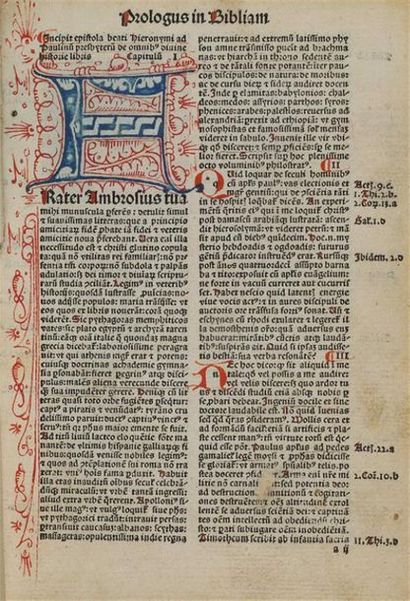 Prologus in Bibliam
Incipit epistola beati Hieronymi ad
Paulinū presbyterū de omnibꝰ diuine
historie libris Capitulū I
Rater Ambrosius tua
mihi munuscula ꝑferēs: detulit simul
et suauissimas literas: que a principio
amicitiaꝝ fidē
amicitie noua ꝑferebant. Uera eni illa
necessitudo est et christi glutino copula
ta: quā nō vtilitas rei familiaris: nō pꝛe
sentia tm̄ corpoꝝ: nō subdola et palpās
adulatio: sed dei timor et diuinaꝝ scriptu
rarū studia ꝯciliāt. Legimꝰ in veterib
historijs quosdā lustrasse puincias: no
uos adijsse populos: maria trāsisse: vt
eos quos ex libris nouerāt: corā quoqꝫ
viderēt. Sic pythagoras memphyticos
vates: sic plato egyptū et archytā taren
tinū: eādēqꝫ oram italie que quondā magna
grecia dicebat laboriosissime peragrauit:
vt qui athenis mgr̄ erat et potens:
cuiusqꝫ doctrinas academie gymna
sia psonabāt: fieret peregrinꝰ atqꝫ disci
pulus: malēs aliena verecunde discere
qꝫ sua impudēter ingerere. Deniqꝫ cū lr̄as
quasi toto orbe fugiētes
captꝰ a piratis et venūdatꝰ: tyrāno cru
delissimo paruit: ductꝰ captiuꝰ vinctꝰ et
seruꝰ: tn̄ quia phūs maior emente se fuit.
Ad titū liuiū lacteo eloquētie fōte ma
nātē: de vltimis hispanie galliarūqꝫ fi
nibus: quosdā venisse nobiles legimꝰ: et
quos ad ꝯtēplationē sui roma nō tra
xerat: vniꝰ hoīs fama pduxit. Habuit
illa etas inauditū oībus seculꝭ celebrā
dūqꝫ miraculū: vt vrbē tantā ingressi:
aliud extra vrbē quererent. Apolloniꝰ si
ue ille magꝰ vt vulgꝰ loquiꝰ: siue phūs
vt pythagorici tradūt: intrauit persas:
ptransiuit caucasum: albanos: scythas:
massagetas: opulentissima indie regna
penetrauit: et ad extremū latissimo phy
son amne trāsmisso puenit ad brachma
nas: vt hiarchā in throno sedentē au
reo et de tātali fonte potantē: inter pau
cos discipulos: de natura: de moribus: ac
de cursu dieꝝ et siderꝝ audiret docentē.
Inde ꝑ elamitas: babylonios: chal
deos: medos: assyrios: parthos: syros:
phenices: arabes: palestinos: reuersus ad
alexandriā: perrexit ad ethiopiā: vt gym
nosophistas et famosissimā solꝭ mensam
videret in sabulo. Inuenit ille vir vbi
qꝫ quod disceret: et semp ꝓficiēs: semp se me
lior fieret. Scripsit sup hoc plenissime
octo voluminibꝰ philostratꝰ. II
Quid loquar de seculi hominibꝰ
cū aptūs paulꝰ: vas electionis et
mgr̄ gentiū: qui de ꝯsciētia tāti
in se hospitꝭ loqbat dicēs. An experimētū
queritis eius qui in me loquiꝰ christꝰ
post damascū arabiāqꝫ lustratā: ascen
dit hierosolymā: vt videret petrū: et mā
sit apud eū diebꝰ quīdecim. Hoc eni my
sterio hebdoadis et ogdoadis: futurus
gentiū p̄dicator instruēdꝰ erat. Rursūqꝫ
post ānos quatuordecī assūpto barna
ba et tito: exposuit cū aptis euangeliū:
ne forte in vacuū curreret aut cucurrif
set. Habet nescio quid latētꝭ energie
viue vocis actꝰ: et in aures discipuli de
auctoris ore trāsfusa fortiꝰ sonat. Un et
eschynes cū rhodi exularet et legeret il
la demosthenis oro: quā aduersus eum
habuerat: mirātibꝰ cūctis atqꝫ laudāti
bꝰ: suspirās ait. Quid si ipsā audisse
tis bestiā: sua verba resonātē III
Nec hoc dico: quod sit aliquid in me
tale: quod vel possis a me audire
vel velis discere: sed quo ardor tu
us et discēdi studiū etiā absqꝫ nobis: p se
ꝓbari debeat. Ingeniū docile et sine
doctore laudabile est. Nō quid inuenias
sed quid queras ꝯsideramꝰ. Mollis cera et
ad formādū facilis etiā si artificis et pla
ste cessent manꝰ: tn̄ virtute totū est quic
quid esse pōt. Paulus aptus ad pedes
gamalielꝭ legē moysi et ꝓphetas didicisse
se gloriat: vt armatꝰ spūalibꝰ telis: po
stea doceret ꝯfidēter. Arma eni nr̄e mili
tie nō carnalia sed potentia deo: ad
ad destructionē munitionū: et cogitatio
nes destruentes: et oēm altitudinē extol
lentē se aduersus sciētiā dei: et captiuan
tes oēm intellectū ad obediendū chri
sto: et parati subiugare oēm inobedientiā.
Timotheum scribit ab infantia sacris
a ij
Act. 9.c.
1. Thi. 2.b.
2. Coꝝ. 13.a
Gal. 1.d
Ibidem. 2.d
Act. 22.a
2. Coꝝ. 10.b
II. Thi. 3.d